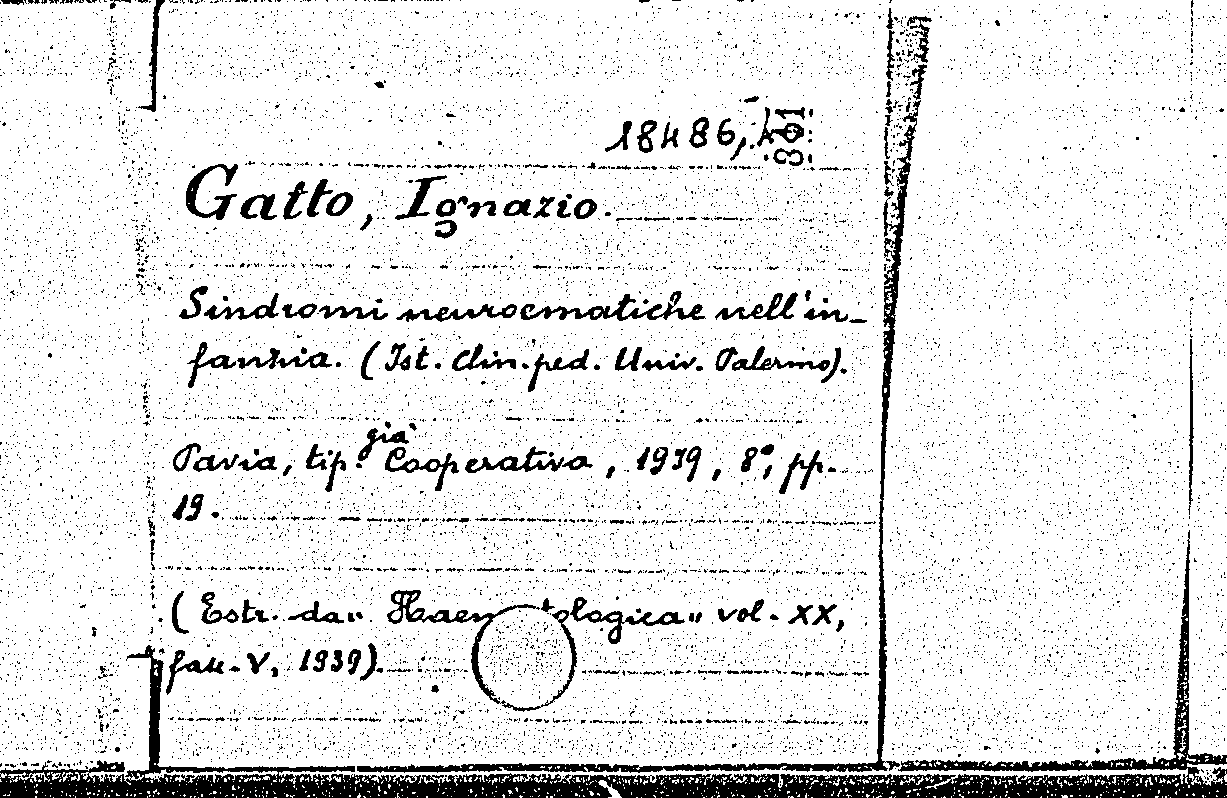 18486,
Gatto, Ignazio.
Sindromi neuroematiche nell'in-
fanzia. (Ist. Clin. ped. Univ. Palermo).
già
Pavia, tip. Cooperativa, 1939, 8°, pp.
19.
(Estr. da "Haem tologica" vol. XX,
fasc. V, 1939).